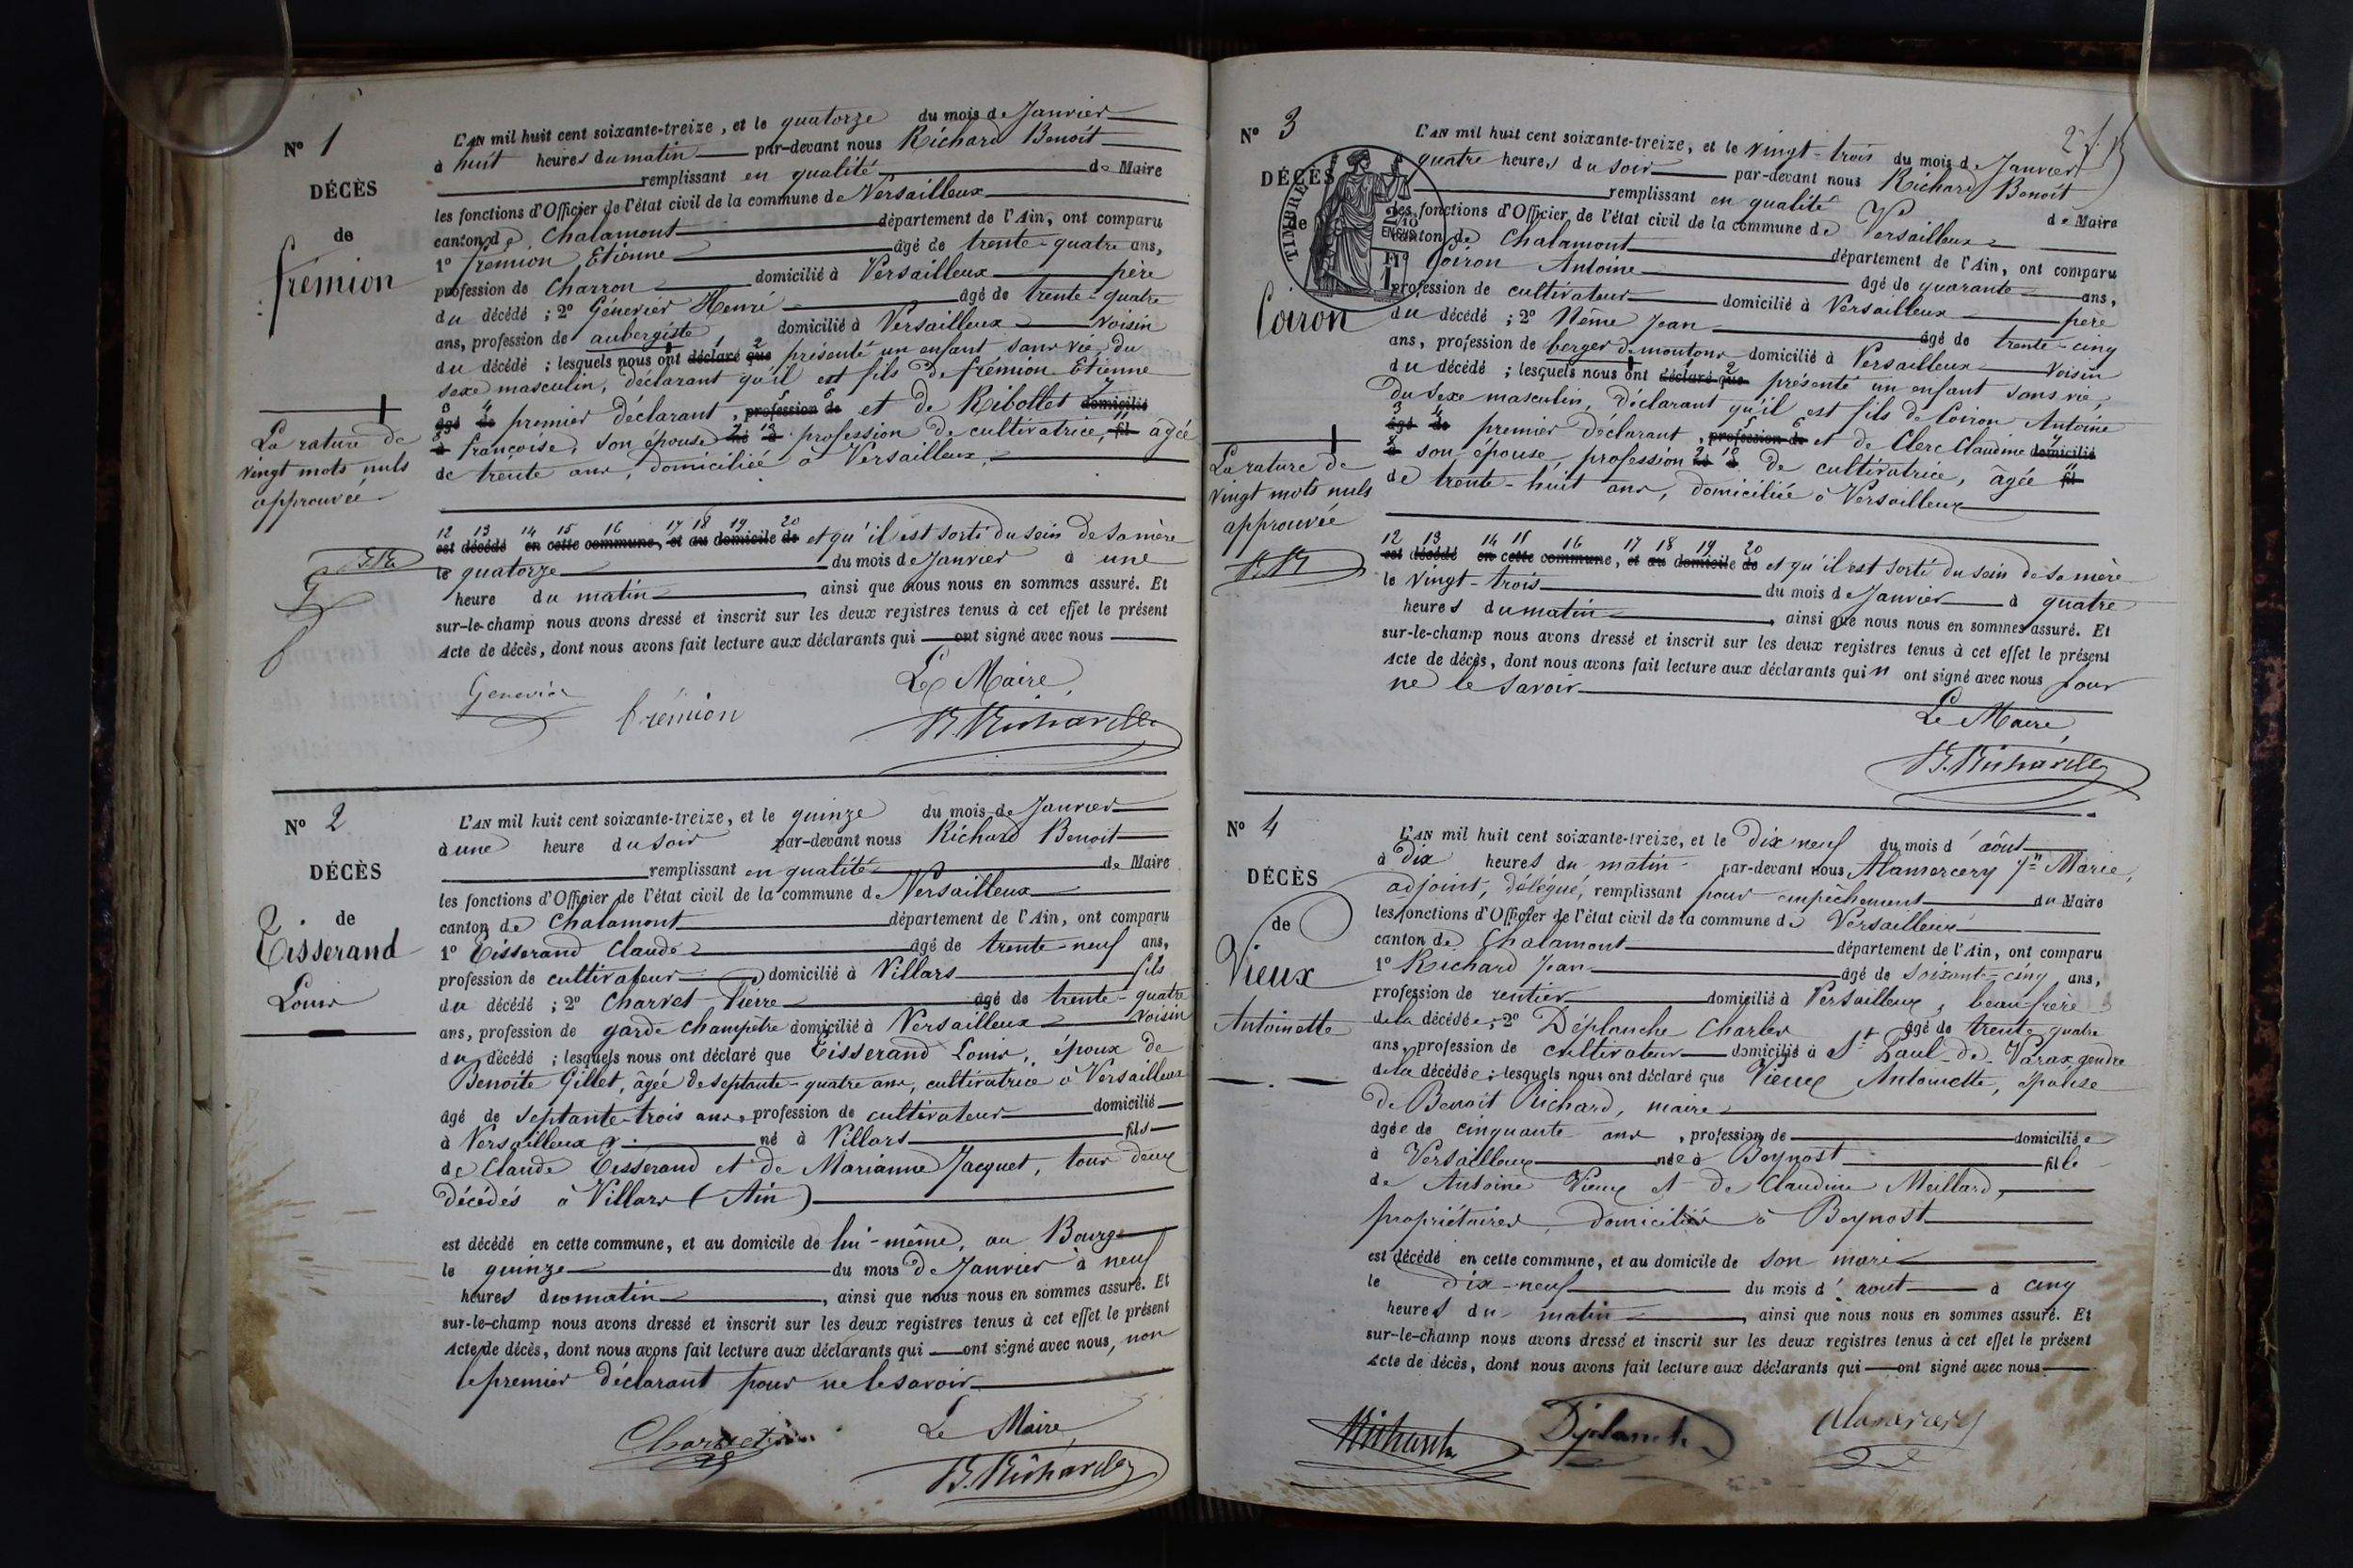 Nº 1
DÉCÈS
de
frémion
La rature de
vingt mots nuls
approuvée.
L'AN mil huit cent soixante-treize, et le quatorze du mois de Janvier
à huit heures du matin par-devant nous Richard Benoît
remplissant en qualité de Maire
les fonctions d'Officier de l'état civil de la commune de Versailleux
canton de Chalamont département de l'Ain, ont comparu
1º frémion Etienne âgé de trente-quatre ans,
profession de Charron domicilié à Versailleux père
du décédé ; 2º Génevier Henri âgé de trente-quatre
ans, profession de aubergiste domicilié à Versailleux voisin
du décédé ; lesquels nous ont déclaré 1 que 2 présenté un enfant sans vie, du
sexe masculin, déclarant qu'il est fils de frémion Etienne
3 âgé 4 de premier déclarant, 5 profession 6 de et de Ribollet 7 domicilié
8 à françoise, son épouse 9 né 10 à profession de cultivatrice, 11 fil âgée
de trente ans, domiciliée à Versailleux,
12 13 14 15 16 17 18 19 20
est décédé en cette commune, et au domicile de et qu'il est sorti du sein de sa mère
le quatorze du mois de Janvier à une
heure du matin, ainsi que nous nous en sommes assuré. Et
sur-le-champ nous avons dressé et inscrit sur les deux registres tenus à cet effet le présent
Acte de décès, dont nous avons fait lecture aux déclarants qui ont signé avec nous
Le Maire,
Genevier frémion B. Richard
Nº 2
DÉCÈS
de
Tisserand
Louis
L'AN mil huit cent soixante-treize, et le quinze du mois de Janvier
à une heure du soir par-devant nous Richard Benoit
remplissant en qualité de Maire
les fonctions d'Officier de l'état civil de la commune de Versailleux
canton de Chalamont département de l'Ain, ont comparu
1º Tisserand Claude âgé de trente-neuf ans,
profession de cultivateur domicilié à Villars fils
du décédé ; 2º Charvet Pierre âgé de trente-quatre
ans, profession de garde champêtre domicilié à Versailleux voisin
du décédé ; lesquels nous ont déclaré que Tisserand Louis, époux de
Benoîte Gillet, âgée de septante-quatre ans, cultivatrice à Versailleux
âgé de septante-trois ans, profession de cultivateur domicilié
à Versailleux né à Villars fils
de Claude Tisserand et de Marianne Jacquet, tous deux
décédés à Villars (Ain)
est décédé en cette commune, et au domicile de lui-même, au Bourg
le quinze du mois de Janvier à neuf
heures du matin, ainsi que nous nous en sommes assuré. Et
sur-le-champ nous avons dressé et inscrit sur les deux registres tenus à cet effet le présent
Acte de décès, dont nous avons fait lecture aux déclarants qui ont signé avec nous, non
le premier déclarant pour ne le savoir
Le Maire,
Charvet B. Richard
Nº 3
DÉCÈS
de
Coiron
La rature de
vingt mots nuls
approuvée
B.R
TIMBRE
L'AN mil huit cent soixante-treize, et le vingt-trois du mois de Janvier
quatre heures du soir par-devant nous Richard Benoît
remplissant en qualité de Maire
les fonctions d'Officier de l'état civil de la commune de Versailleux
canton de Chalamont département de l'Ain, ont comparu
1º Coiron Antoine âgé de quarante ans,
profession de cultivateur domicilié à Versailleux père
du décédé ; 2º Nême Jean âgé de trente-cinq
ans, profession de berger de moutons domicilié à Versailleux voisin
du décédé ; lesquels nous ont déclaré 1 que 2 présenté un enfant sans vie,
du sexe masculin, déclarant qu'il est fils de Coiron Antoine
3 âgé 4 de premier déclarant, 5 profession 6 de et de Clerc Claudine 7 domicilié
8 à son épouse, profession 9 né 10 à de cultivatrice, âgée 11 fil
de trente-huit ans, domiciliée à Versailleux
12 13 14 15 16 17 18 19 20
est décédé en cette commune, et au domicile de et qu'il est sorti du sein de sa mère
le vingt-trois du mois de Janvier à quatre
heures du matin, ainsi que nous nous en sommes assuré. Et
sur-le-champ nous avons dressé et inscrit sur les deux registres tenus à cet effet le présent
Acte de décès, dont nous avons fait lecture aux déclarants qui n'ont signé avec nous pour
ne le savoir
Le Maire,
B. Richard
Nº 4
DÉCÈS
de
Vieux
Antoinette
L'AN mil huit cent soixante-treize, et le Dix neuf du mois d'août
à Dix heures du matin par-devant nous Alamercery Jn Marie,
adjoint, délégué, remplissant pour empêchement du Maire
les fonctions d'Officier de l'état civil de la commune de Versailleux
canton de Chalamont département de l'Ain, ont comparu
1º Richard Jean âgé de soixante-cinq ans,
profession de rentier domicilié à Versailleux, beau-frère
de la décédée ; 2º Déplanche Charles âgé de trente quatre
ans, profession de cultivateur domicilié à St Paul-de-Varax, gendre
de la décédée ; lesquels nous ont déclaré que Vieux Antoinette, épouse
de Benoit Richard, maire
âgée de cinquante ans, profession de domiciliée
à Versailleux née à Beynost fille
de Antoine Vieux et de Claudine Meillard,
propriétaires, domiciliés à Beynost
est décédé en cette commune, et au domicile de son mari
le dix-neuf du mois d'août à cinq
heures du matin, ainsi que nous nous en sommes assuré. Et
sur-le-champ nous avons dressé et inscrit sur les deux registres tenus à cet effet le présent
Acte de décès, dont nous avons fait lecture aux déclarants qui ont signé avec nous
Richard Déplanche Alamercery